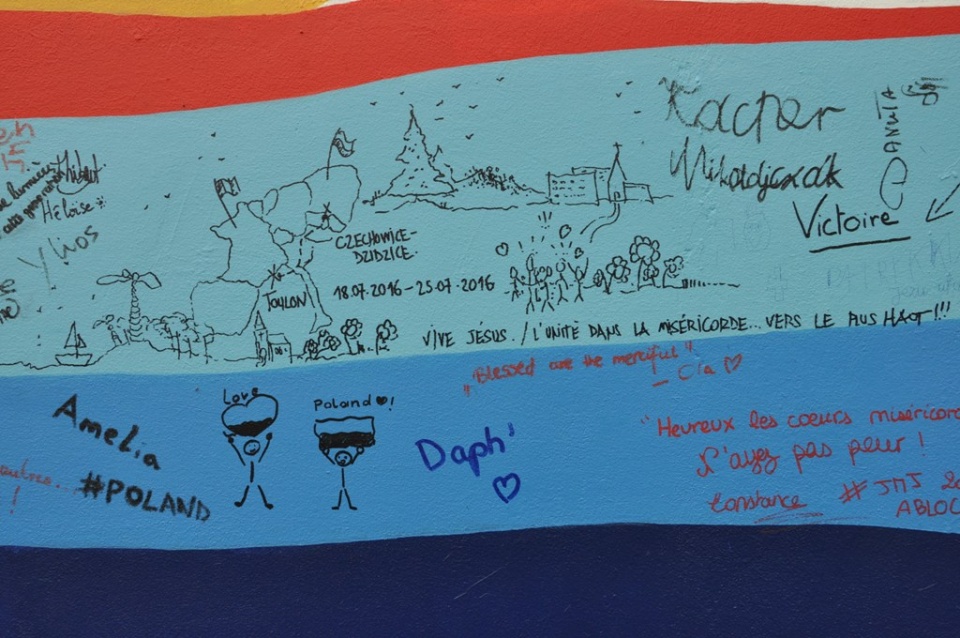 Thibaut
Héloïse
Ylios
CZECHOWICE-
DZIDZICE
TOULON
18.07.2016 – 25.07.2016
VIVE JÉSUS ! L'UNITÉ DANS LA MISÉRICORDE... VERS LE PLUS HAUT !!!
Kacper
Mikołajczak
Victoire
ANUTA
"Blessed are the merciful"
— Cla ♡
Love
Poland ♥!
Amelia
#POLAND
Daph'
♡
"Heureux les coeurs miséricor
N'ayez pas peur !
Constance # JMJ 20
ABLOC